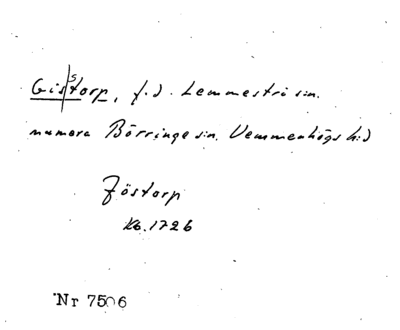 Gisstorp, f.d. Lemmeströ sn.
numera Börringe sn. Vemmenhögs hd
Jöstorp
Kb. 1726
Nr 7506